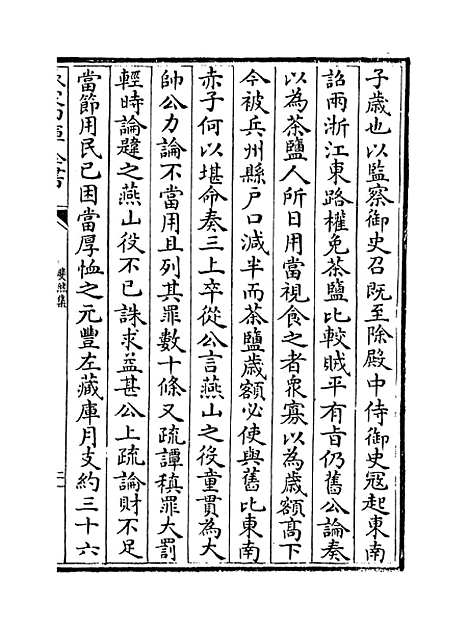 子歳也以監察御史召既至除殿中侍御史冦起東南
詔兩浙江東路權免茶鹽比較賊平有㫖仍舊公論奏
以為茶鹽人所日用當視食之者衆寡以為歳額髙下
今被兵州縣戸口減半而茶鹽歳額必使與舊比東南
赤子何以堪命奏三上卒從公言燕山之役童貫為大
帥公力論不當用且列其罪數十條又疏譚稹罪大罰
輕時論韙之燕山役不已誅求益甚公上疏論財不足
當節用民已困當厚恤之元豐左藏庫月支約三十六
斐然集